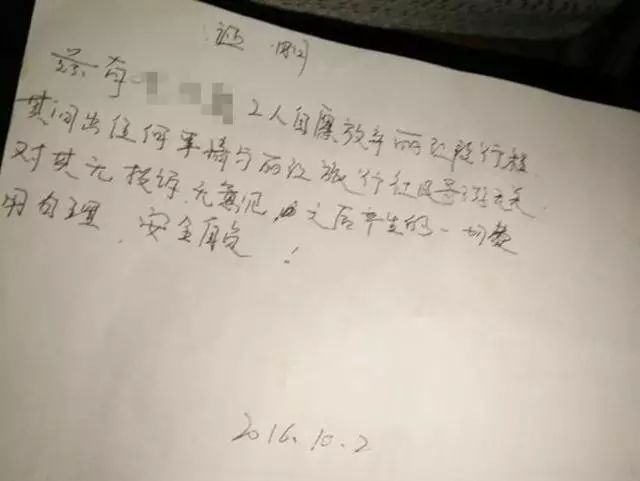 证明
兹有 2人自愿放弃丽江段行程
其间出任何事情与丽江旅行社及导游无关
对其无投诉、无意见，之后产生的一切费
用自理、安全自负！
2016.10.2